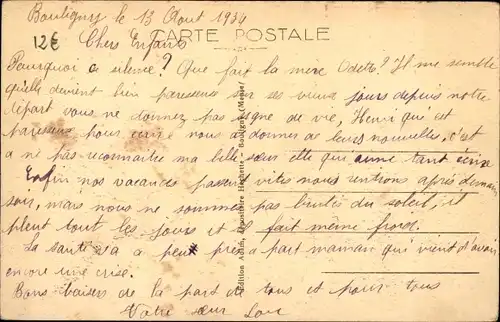 Bouligny le 13 Aout 1934
12€
Chers Enfants
CARTE POSTALE
Pourquoi ce silence? Que fait la mère Odette? Il me semble
qu'elle devient bien paresseuse sur ses vieux jours depuis notre
départ vous ne donnez pas signe de vie, Henri qui est
paresseux pour écrire nous a donner de leurs nouvelles, c'est
a ne pas reconnaitre ma belle sœur elle qui aime tant écrire
Enfin nos vacances passent vites nous rentrons après demain
soir, mais nous ne sommes pas brulés du soleil, il
pleut tout les jours et il fait même froid.
La santé va a peut près a part maman qui vient d'avoir
encore une crise.
Bons baisers de la part de tous et pour tous
Votre sœur Lou
Edition Bouligny (Meuse)